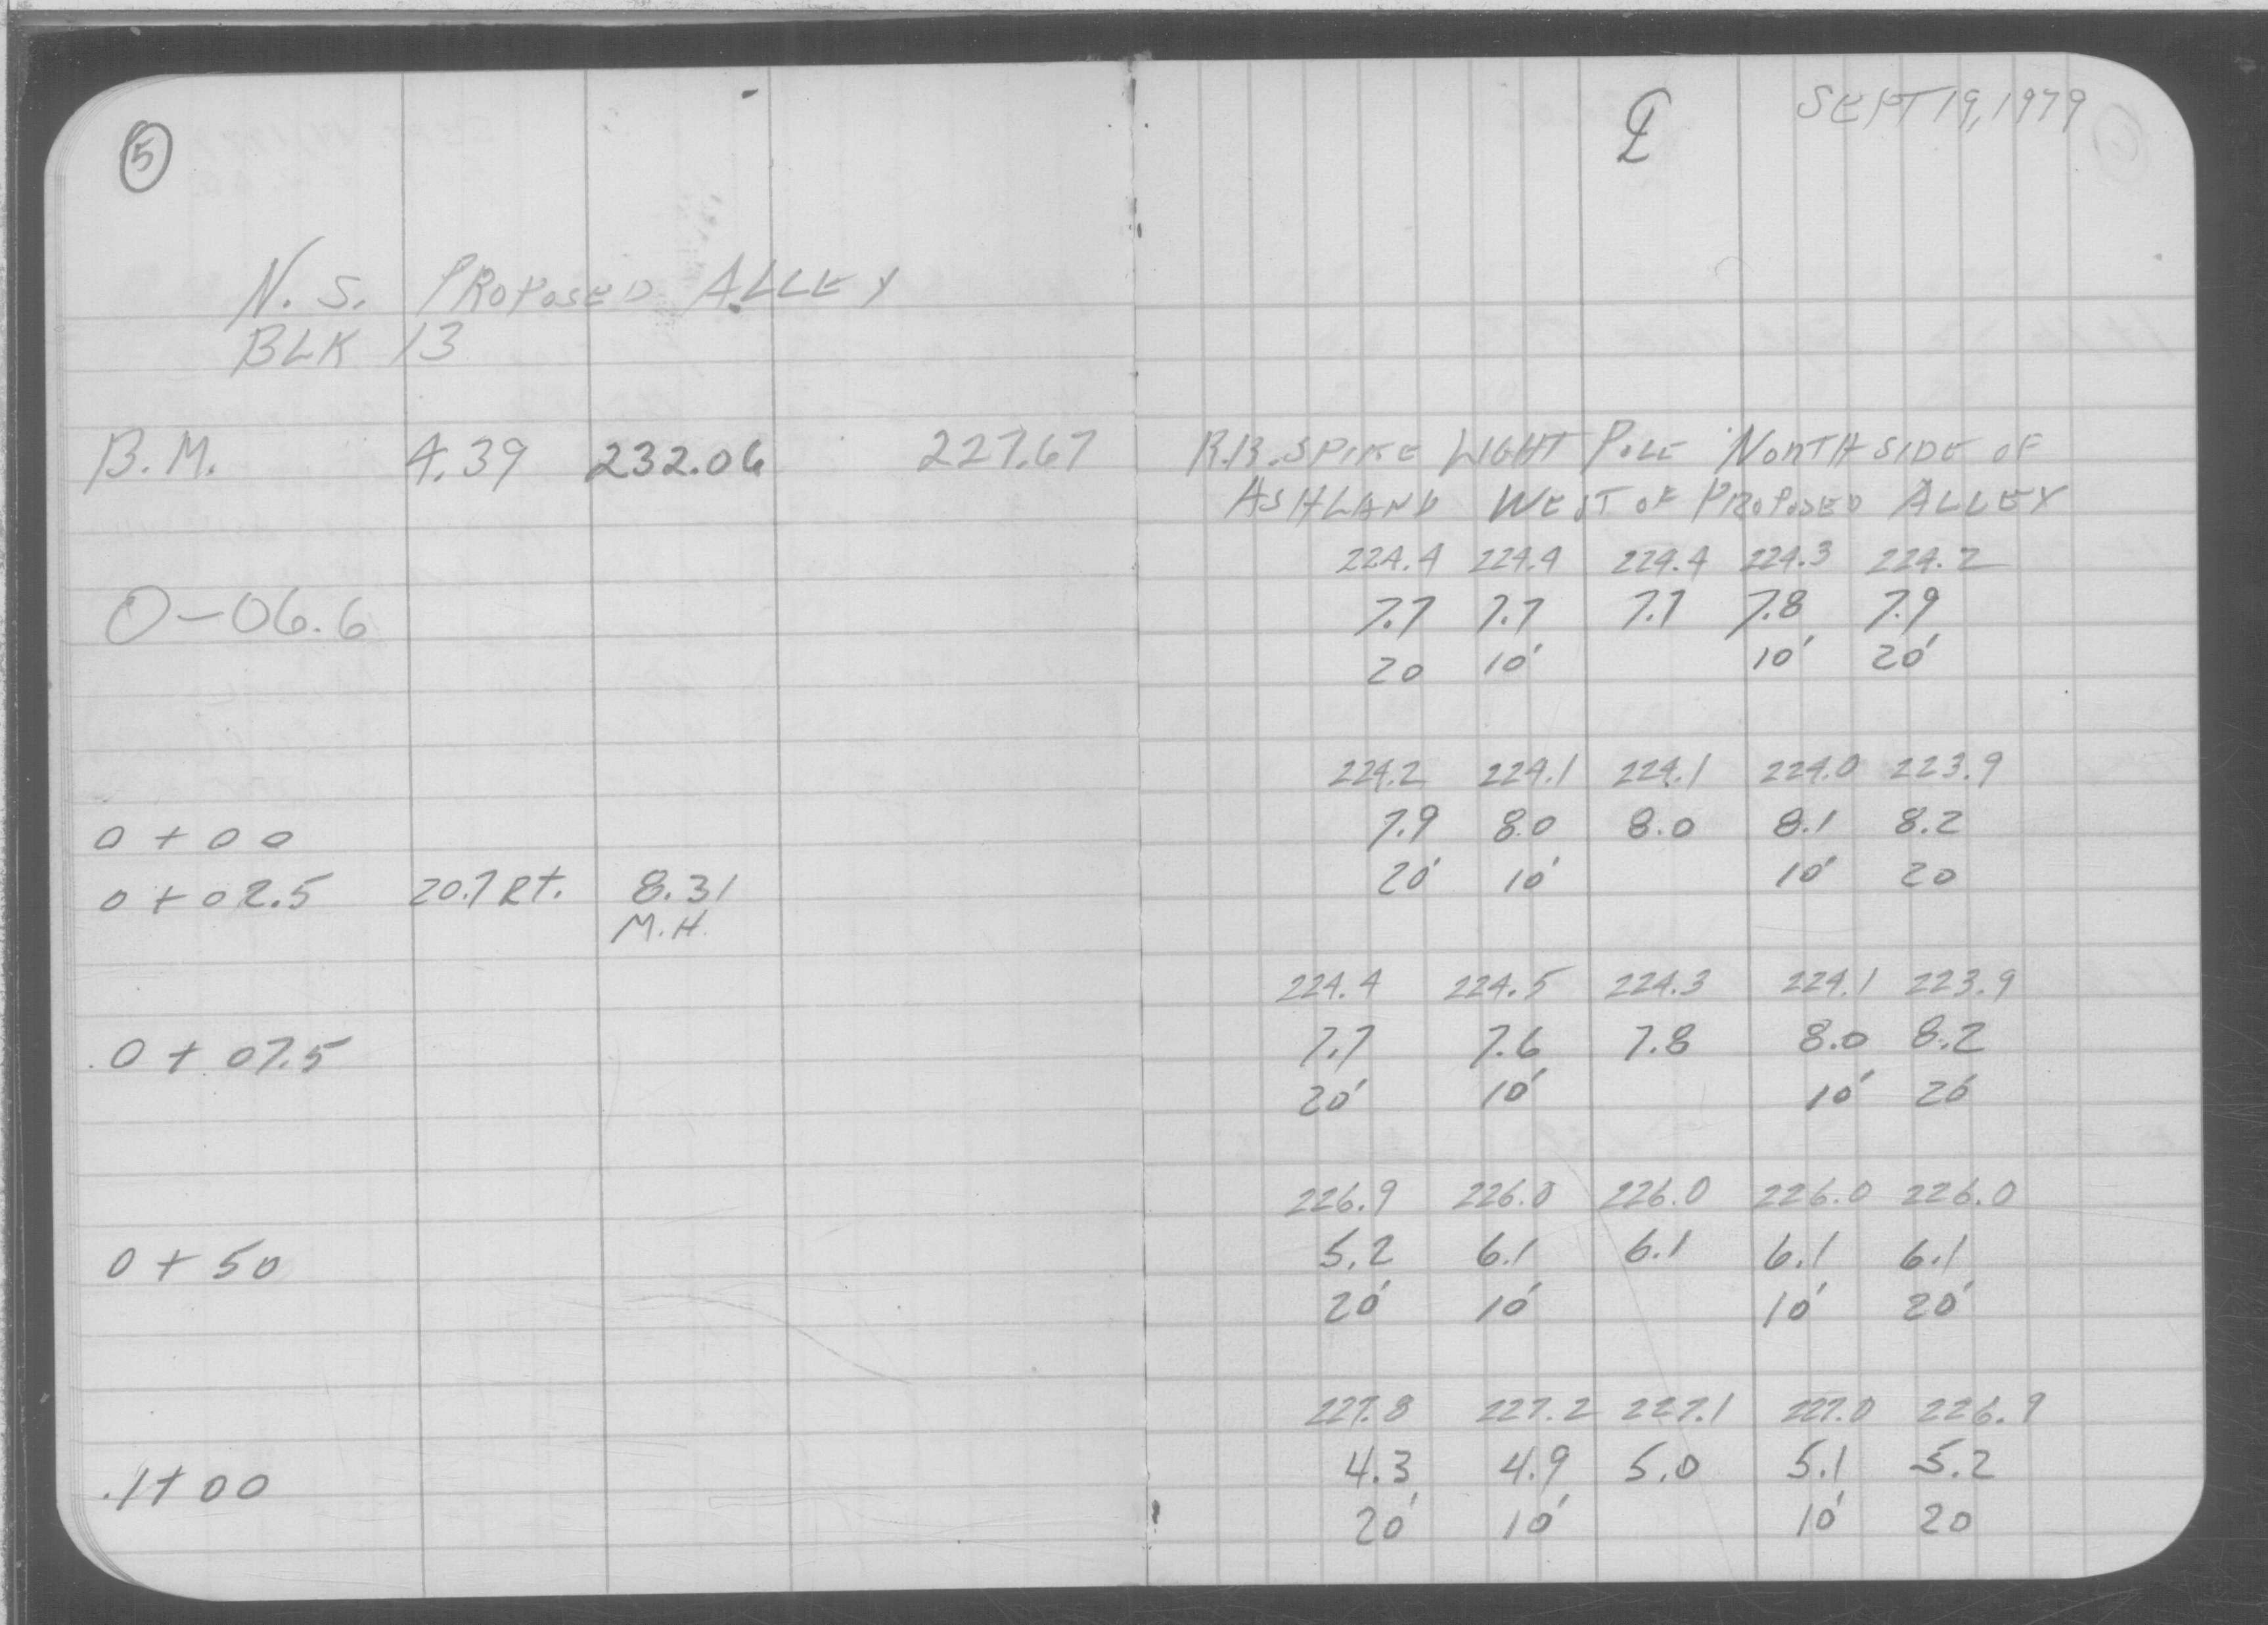 5
N. S. PROPOSED ALLEY
BLK 13
B.M. 4.39 232.06 227.67
0-06.6
0+00
0+02.5 20.7 Rt. 8.31
M.H.
0+07.5
0+50
1+00
℄ SEPT 19, 1979
R.R. SPIKE LIGHT POLE NORTH SIDE OF
ASHLAND WEST OF PROPOSED ALLEY
224.4 224.4 224.4 224.3 224.2
7.7 7.7 7.7 7.8 7.9
20 10' 10' 20'
224.2 224.1 224.1 224.0 223.9
7.9 8.0 8.0 8.1 8.2
20' 10' 10' 20
224.4 224.5 224.3 224.1 223.9
7.7 7.6 7.8 8.0 8.2
20' 10' 10' 20
226.9 226.0 226.0 226.0 226.0
5.2 6.1 6.1 6.1 6.1
20' 10' 10' 20'
227.8 227.2 227.1 227.0 226.9
4.3 4.9 5.0 5.1 5.2
20' 10' 10' 20